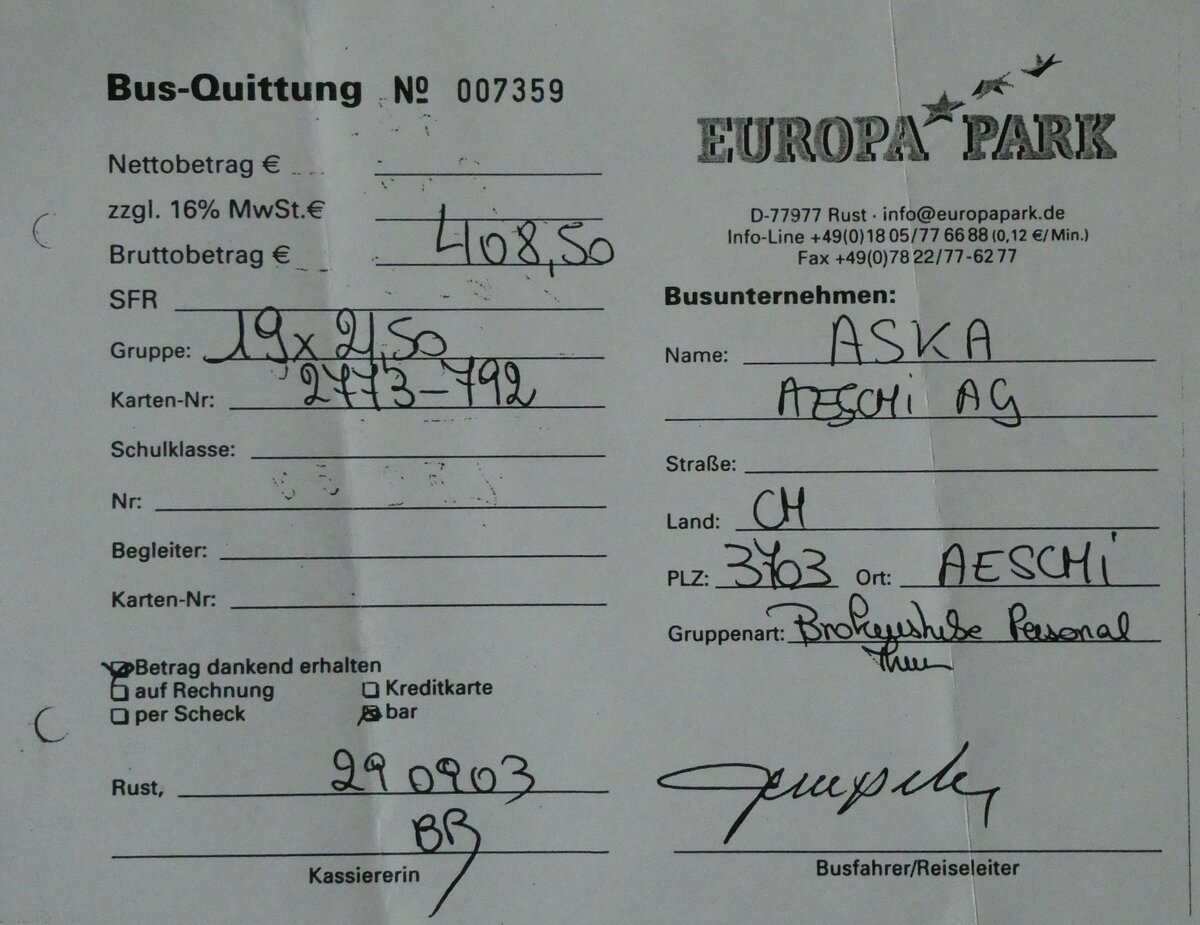 Bus-Quittung Nº 007359
Nettobetrag €
zzgl. 16% MwSt.€
Bruttobetrag € 408,50
SFR
Gruppe: 19 x 21,50
Karten-Nr: 2773-792
Schulklasse:
Nr:
Begleiter:
Karten-Nr:
Betrag dankend erhalten
auf Rechnung
Kreditkarte
per Scheck
bar
Rust, 290903
BR
Kassiererin
EUROPA PARK
D-77977 Rust · info@europapark.de
Info-Line +49(0)18 05/77 66 88 (0,12 €/Min.)
Fax +49(0)78 22/77-62 77
Busunternehmen:
Name: ASKA
AESCHi AG
Straße:
Land: CH
PLZ: 3703 Ort: AESCHi
Gruppenart: Personal
Thun
Busfahrer/Reiseleiter